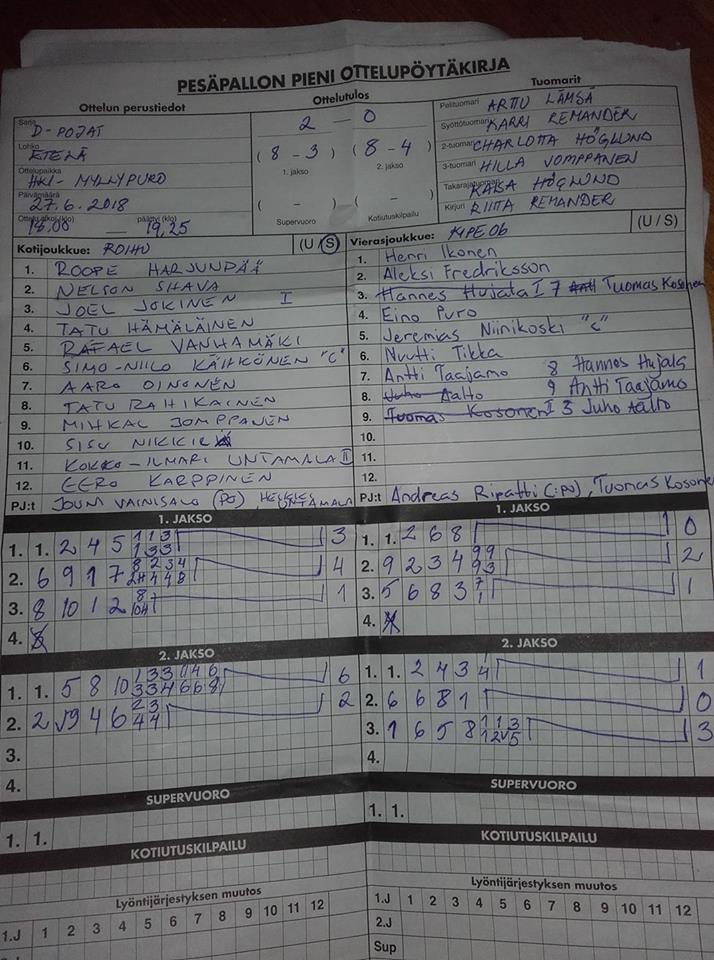 PESÄPALLON PIENI OTTELUPÖYTÄKIRJA
Ottelun perustiedot
Ottelutulos
Tuomarit
Sarja
D-POJAT
Lohko
ETELÄ
Ottelupaikka
HKI- MYLLYPURO
Päivämäärä
27.6.2018
Ottelu alkoi (klo) 18.00 päättyi (klo) 19,25
2 - 0
( 8 - 3 ) ( 8 - 4 )
1. jakso 2. jakso
( - ) ( - )
Supervuoro Kotiutuskilpailu
Pelituomari ARTTU LÄMSÄ
Syöttötuomari KARRI REMANDER
2-tuomari CHARLOTTA HÖGLUND
3-tuomari HILLA VOMPPANEN
Takarajatuomari KAISA HÖGLUND
Kirjuri RIITTA REMANDER
Kotijoukkue: ROIHU (U / S)
1. ROOPE HARJUNPÄÄ
2. NELSON SHAVA
3. JOEL JOKINEN I
4. TATU HÄMÄLÄINEN
5. RAFAEL VANHAMÄKI
6. SIMO-NIILO KÄIHKÖNEN "C"
7. AARO OINONEN
8. TATU RAHIKAINEN
9. MIHKAL JOMPPANEN
10. SISU
11. KOKKO-ILMARI UNTAMALA II
12. EERO KARPPINEN
PJ:t JOUNI VAINISALO (PO), UNTAMALA
Vierasjoukkue: KIPE 06 (U / S)
1. Henri Ikonen
2. Aleksi Fredriksson
3. Hannes Hujala I 7 Tuomas Kosonen
4. Eino Puro
5. Jeremias Niinikoski "c"
6. Nuutti Tikka
7. Antti Taajamo 8 Hannes Hujala
8. Juho Aalto 9 Antti Taajamo
9. Tuomas Kosonen I 3 Juho Aalto
10.
11.
12.
PJ:t Andreas Ripatti (:PO), Tuomas Kosonen
1. JAKSO
1. 1. 2 4 5 1 1 3 3
1 3 3
2. 6 9 1 7 8 2 3 4 4
3. 8 10 1 2 8 1
4.
2. JAKSO
1. 1. 5 8 10 6
2. 2 9 4 6 2 3 2
4 4
3.
4.
SUPERVUORO
1. 1.
KOTIUTUSKILPAILU
Lyöntijärjestyksen muutos
1.J 1 2 3 4 5 6 7 8 9 10 11 12
1. JAKSO
1. 1. 2 6 8 0
2. 9 2 3 4 9 9 2
9 3
3. 5 6 8 3 7 1
1
4.
2. JAKSO
1. 1. 2 4 3 4 1
2. 6 6 8 1 0
3. 1 6 5 8 1 1 3 3
4.
SUPERVUORO
1. 1.
KOTIUTUSKILPAILU
Lyöntijärjestyksen muutos
1.J 1 2 3 4 5 6 7 8 9 10 11 12
2.J
Sup